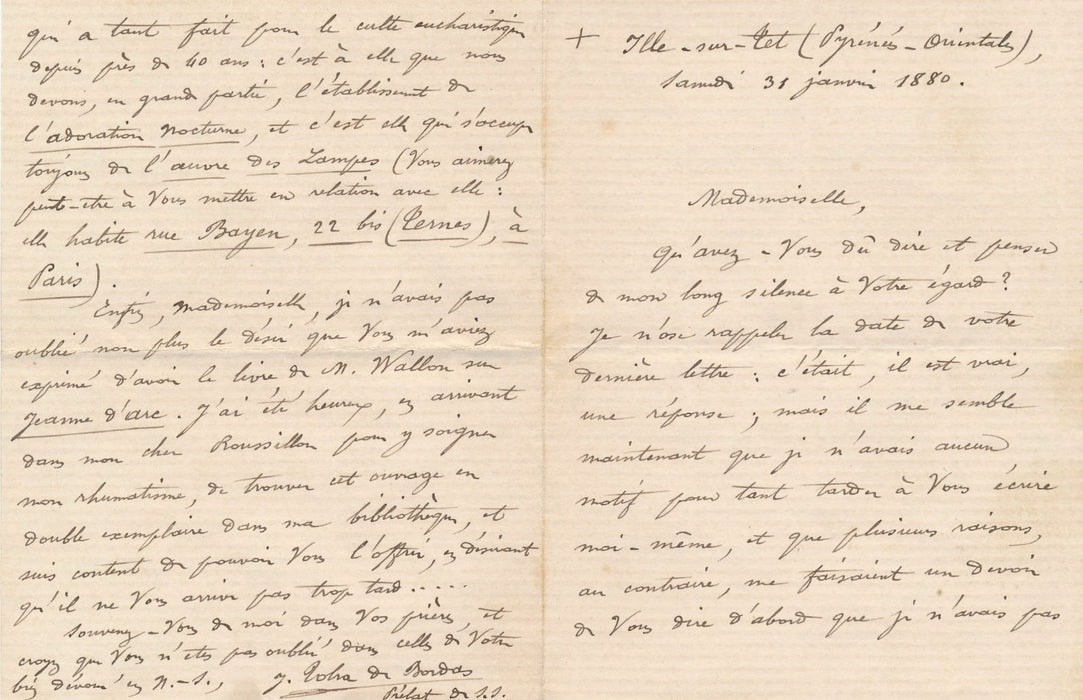 + Ille-sur-Tet (Pyrénées-Orientales),
Samedi 31 janvier 1880.
Mademoiselle,
Qu'avez-Vous dû dire et penser
de mon long silence à Votre égard ?
Je n'ose rappeler la date de votre
dernière lettre : c'était, il est vrai,
une réponse ; mais il me semble
maintenant que je n'avais aucun
motif pour tant tarder à Vous écrire
moi-même, et que plusieurs raisons,
au contraire, me faisaient un devoir
de Vous dire d'abord que je n'avais pas
qui a tant fait pour le culte eucharistique
depuis près de 40 ans : c'est à elle que nous
devons, en grande partie, l'établissement de
l'adoration nocturne, et c'est elle qui s'occupe
toujours de l'œuvre des Lampes (Vous aimerez
peut-etre à Vous mettre en relation avec elle :
elle habite rue Bayen, 22 bis (Ternes), à
Paris).
Enfin, Mademoiselle, je n'avais pas
oublié non plus le désir que Vous m'aviez
exprimé d'avoir le livre de M. Wallon sur
Jeanne d'arc. J'ai été heureux, en arrivant
dans mon cher Roussillon pour y soigner
mon rhumatisme, de trouver cet ouvrage en
double exemplaire dans ma bibliothèque, et
suis content de pouvoir Vous l'offrir, en désirant
qu'il ne Vous arrive pas trop tard.....
Souvenez-Vous de moi dans Vos prières, et
croyez que Vous n'etes pas oubliée dans celles de Votre
bien dévoué en N.-S.,
J. Tolra de Bordas
Prélat de S.S.